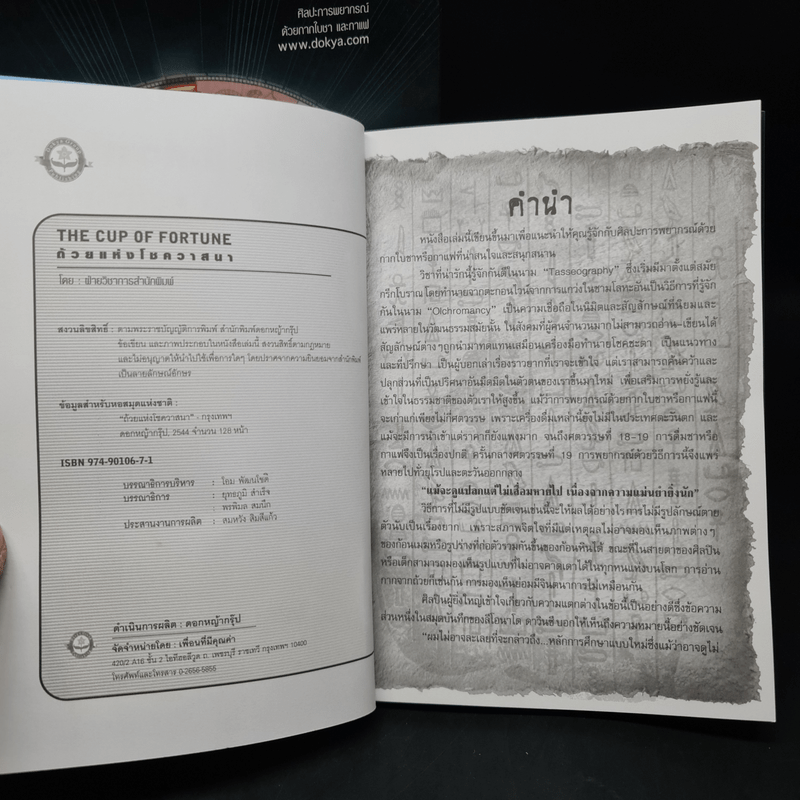 ศิลปะการพยากรณ์
ด้วยกากใบชา และกาแฟ
www.dokya.com
THE CUP OF FORTUNE
ถ้วยแห่งโชควาสนา
โดย : ฝ่ายวิชาการสำนักพิมพ์
สงวนลิขสิทธิ์ : ตามพระราชบัญญัติการพิมพ์ สำนักพิมพ์ดอกหญ้ากรุ๊ป
ข้อเขียน และภาพประกอบในหนังสือเล่มนี้ สงวนสิทธิ์ตามกฎหมาย
และไม่อนุญาตให้นำไปใช้เพื่อการใดๆ โดยปราศจากความยินยอมจากสำนักพิมพ์
เป็นลายลักษณ์อักษร
ข้อมูลสำหรับหอสมุดแห่งชาติ :
"ถ้วยแห่งโชควาสนา" - กรุงเทพฯ
ดอกหญ้ากรุ๊ป, 2544 จำนวน 128 หน้า
ISBN 974-90106-7-1
บรรณาธิการบริหาร : โอม พัฒนโชติ
บรรณาธิการ : ยุทธภูมิ สำเร็จ
พรพิมล สมนึก
ประสานงานการผลิต : สมหวัง สิมสีแก้ว
ดำเนินการผลิต : ดอกหญ้ากรุ๊ป
จัดจำหน่ายโดย : เพื่อนที่มีคุณค่า
420/2 A16 ชั้น 2 ไอทีฮอลีวูด ถ. เพชรบุรี ราชเทวี กรุงเทพฯ 10400
โทรศัพท์และโทรสาร 0-2656-5855
คำนำ
หนังสือเล่มนี้เขียนขึ้นมาเพื่อแนะนำให้คุณรู้จักกับศิลปะการพยากรณ์ด้วย
กากใบชาหรือกาแฟที่น่าสนใจและสนุกสนาน
วิชาที่น่ารักนี้รู้จักกันดีในนาม "Tasseography" ซึ่งเริ่มมีมาตั้งแต่สมัย
กรีกโบราณ โดยทำนายจากตะกอนไวน์จากการแกว่งในชามโลหะอันเป็นวิธีการที่รู้จัก
กันในนาม "Olchromancy" เป็นความเชื่อถือในนิมิตและสัญลักษณ์ที่นิยมและ
แพร่หลายในวัฒนธรรมสมัยนั้น ในสังคมที่ผู้คนจำนวนมากไม่สามารถอ่าน-เขียนได้
สัญลักษณ์ต่างๆ ถูกนำมาทดแทนเสมือนเครื่องมือทำนายโชคชะตา เป็นแนวทาง
และที่ปรึกษา เป็นผู้บอกเล่าเรื่องราวยากที่เราจะเข้าใจ แต่เราสามารถค้นคว้าและ
ปลุกส่วนที่เป็นปริศนาอันมืดมิดในตัวตนของเราขึ้นมาใหม่ เพื่อเสริมการหยั่งรู้และ
เข้าใจในธรรมชาติของตัวเราให้สูงขึ้น แม้ว่าการพยากรณ์ด้วยกากใบชาหรือกาแฟนี้
จะเก่าแก่เพียงไม่กี่ศตวรรษ เพราะเครื่องดื่มเหล่านี้ยังไม่มีในประเทศตะวันตก และ
แม้จะมีการนำเข้าแต่ราคาก็ยังแพงมาก จนถึงศตวรรษที่ 18-19 การดื่มชาหรือ
กาแฟจึงเป็นเรื่องปกติ ครั้นกลางศตวรรษที่ 19 การพยากรณ์ด้วยวิธีการนี้จึงแพร่
หลายไปทั่วยุโรปและตะวันออกกลาง
"แม้จะดูแปลกแต่ไม่เสื่อมหายไป เนื่องจากความแม่นยำยิ่งนัก"
วิธีการที่ไม่มีรูปแบบชัดเจนเช่นนี้จะให้ผลได้อย่างไร การไม่มีรูปลักษณ์ตาย
ตัวนับเป็นเรื่องยาก เพราะสภาพจิตใจที่มีแต่เหตุผลไม่อาจมองเห็นภาพต่างๆ
ของก้อนเมฆหรือรูปร่างที่ก่อตัวรวมกันขึ้นของก้อนหินได้ ขณะที่ในสายตาของศิลปิน
หรือเด็กสามารถมองเห็นรูปแบบที่ไม่อาจคาดเดาได้ในทุกหนแห่งบนโลก การอ่าน
กากจากถ้วยก็เช่นกัน การมองเห็นย่อมมีจินตนาการไม่เหมือนกัน
ศิลปินผู้ยิ่งใหญ่เข้าใจเกี่ยวกับความแตกต่างในข้อนี้เป็นอย่างดีซึ่งข้อความ
ส่วนหนึ่งในสมุดบันทึกของลีโอนาโด ดาวินชี บอกให้เห็นถึงความหมายนี้อย่างชัดเจน
"ผมไม่อาจละเลยที่จะกล่าวถึง...หลักการศึกษาแบบใหม่ซึ่งแม้ว่าอาจดูไม่